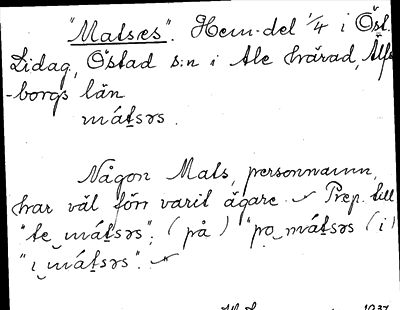 "Matses". Hem.del 1/4 i Öst.
Lidag, Östad s:n i Ale härad, Älfs
-borgs län
máts̱ərs.
Någon Mats, personnamn,
har väl förr varit ägare. – Prep. till
"te‿máṯsəs"; (på) "po̤‿máṯsəs (i)
"ı‿máṯsəs". –
1937